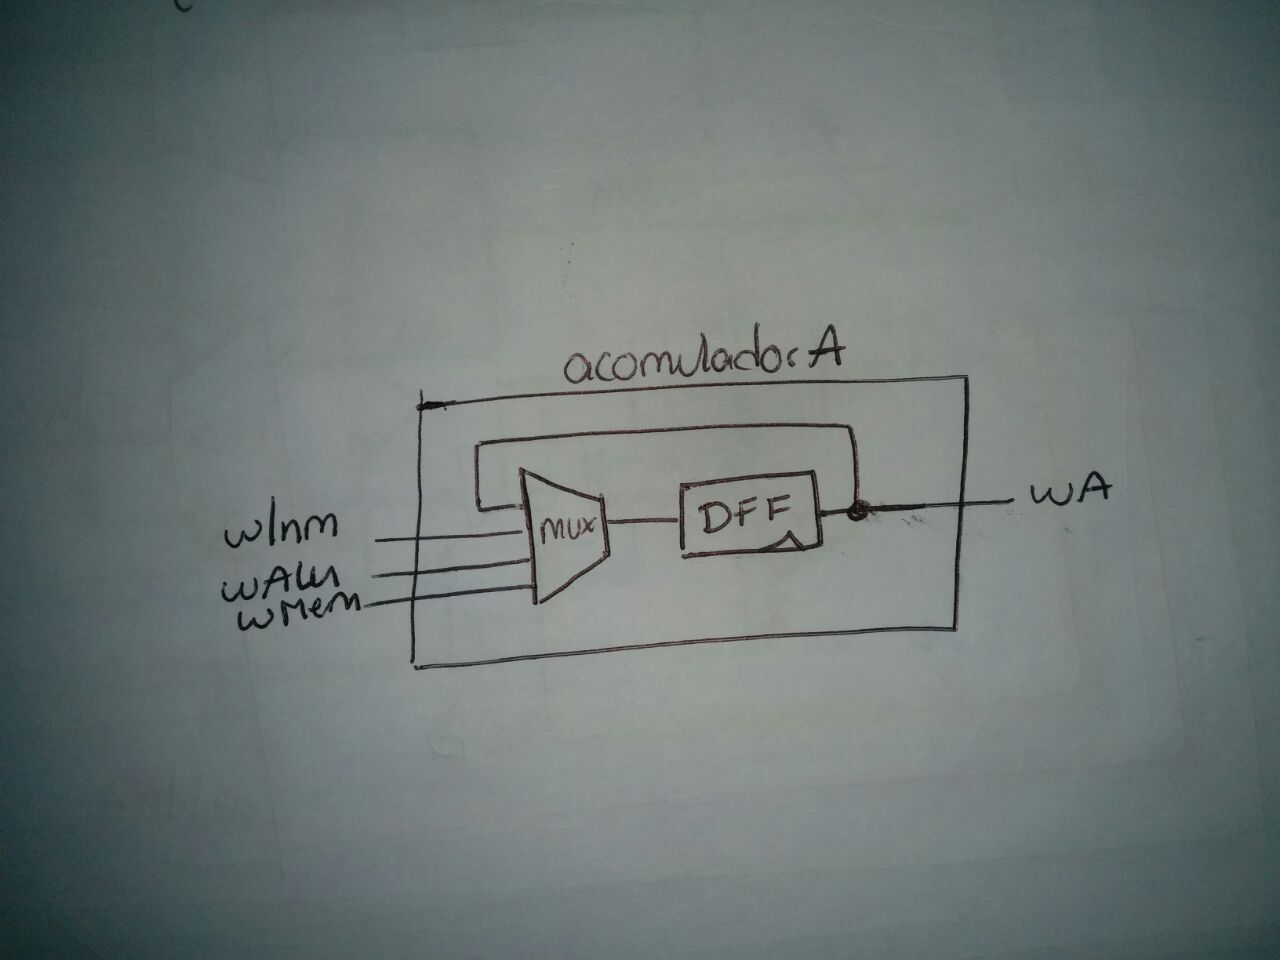 acomulador A
wInm
wAlu
wMem
MUX
DFF
wA